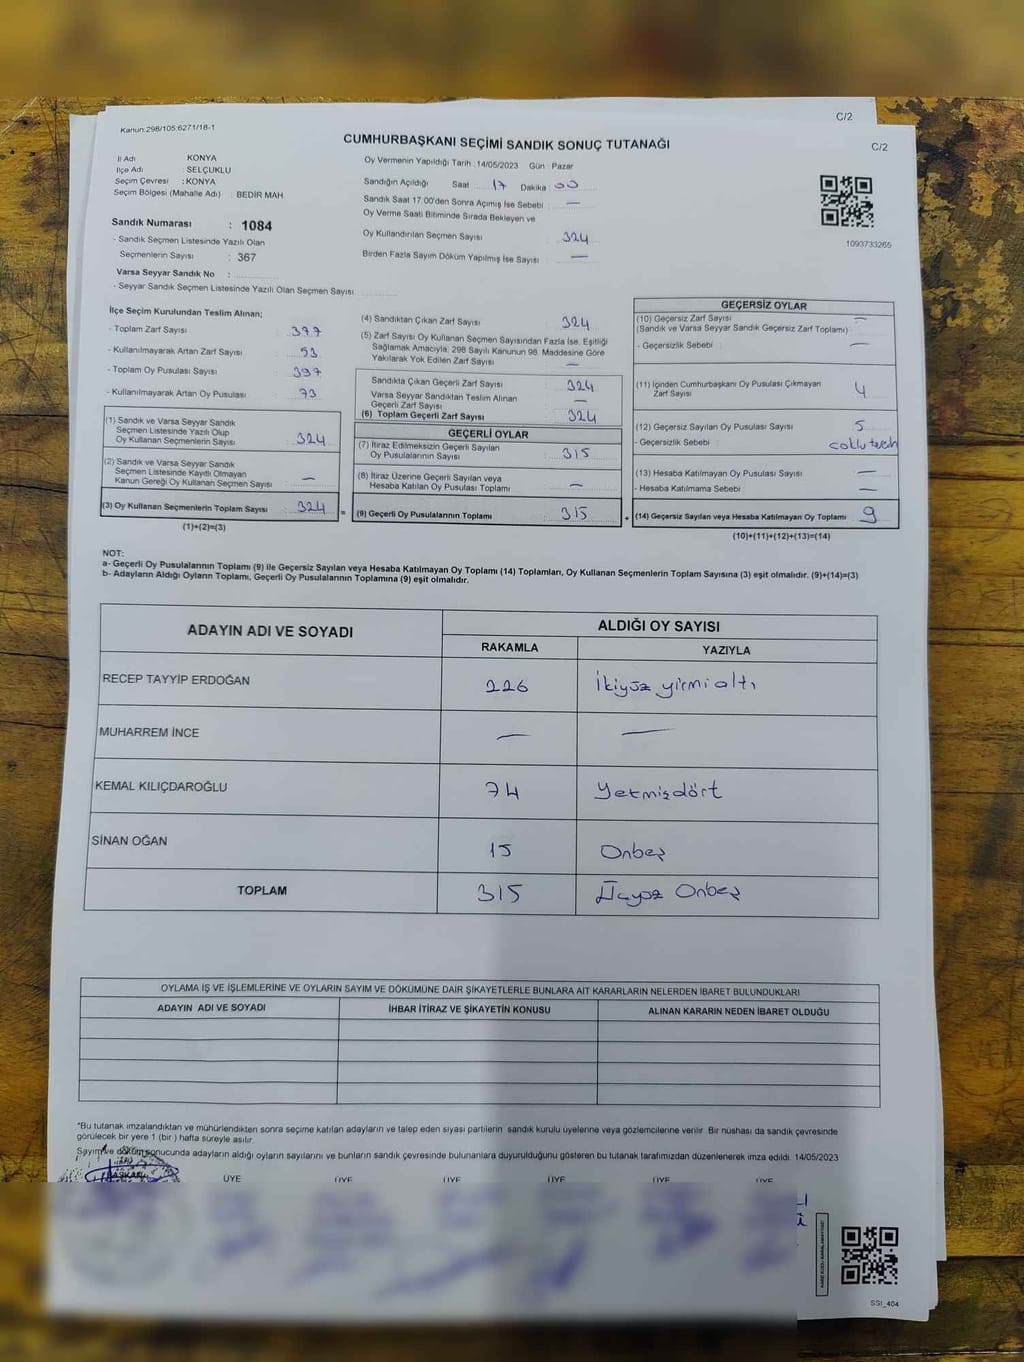 C/2
Kanun:298/105;6271/18-1
CUMHURBAŞKANI SEÇİMİ SANDIK SONUÇ TUTANAĞI
C/2
İl Adı KONYA
İlçe Adı : SELÇUKLU
Seçim Çevresi : KONYA
Seçim Bölgesi (Mahalle Adı) : BEDİR MAH
Oy Vermenin Yapıldığı Tarih : 14/05/2023 Gün : Pazar
Sandığın Açıldığı Saat 17 Dakika : 00
Sandık Saat 17.00'den Sonra Açımış İse Sebebi : —
Oy Verme Saati Bitiminde Sırada Bekleyen ve
Oy Kullandırılan Seçmen Sayısı : 324
Birden Fazla Sayım Döküm Yapılmış İse Sayısı : —
1093733265
Sandık Numarası : 1084
- Sandık Seçmen Listesinde Yazılı Olan
Seçmenlerin Sayısı : 367
Varsa Seyyar Sandık No :
- Seyyar Sandık Seçmen Listesinde Yazılı Olan Seçmen Sayısı:
İlçe Seçim Kurulundan Teslim Alınan;
- Toplam Zarf Sayısı : 377
- Kullanılmayarak Artan Zarf Sayısı : 53
- Toplam Oy Pusulası Sayısı : 397
- Kullanılmayarak Artan Oy Pusulası : 73
(1) Sandık ve Varsa Seyyar Sandık
Seçmen Listesinde Yazılı Olup
Oy Kullanan Seçmenlerin Sayısı : 324
(2) Sandık ve Varsa Seyyar Sandık
Seçmen Listesinde Kayıtlı Olmayan
Kanun Gereği Oy Kullanan Seçmen Sayısı : —
(3) Oy Kullanan Seçmenlerin Toplam Sayısı : 324
(1)+(2)=(3)
=
(4) Sandıktan Çıkan Zarf Sayısı : 324
(5) Zarf Sayısı Oy Kullanan Seçmen Sayısından Fazla İse, Eşitliği
Sağlamak Amacıyla; 298 Sayılı Kanunun 98. Maddesine Göre
Yakılarak Yok Edilen Zarf Sayısı : —
Sandıkta Çıkan Geçerli Zarf Sayısı : 324
Varsa Seyyar Sandıktan Teslim Alınan
Geçerli Zarf Sayısı : —
(6) Toplam Geçerli Zarf Sayısı : 324
GEÇERLİ OYLAR
(7) İtiraz Edilmeksizin Geçerli Sayılan
Oy Pusulalarının Sayısı : 315
(8) İtiraz Üzerine Geçerli Sayılan veya
Hesaba Katılan Oy Pusulası Toplamı : —
(9) Geçerli Oy Pusulalarının Toplamı : 315
+
GEÇERSİZ OYLAR
(10) Geçersiz Zarf Sayısı : —
(Sandık ve Varsa Seyyar Sandık Geçersiz Zarf Toplamı)
- Geçersizlik Sebebi : —
(11) İçinden Cumhurbaşkanı Oy Pusulası Çıkmayan
Zarf Sayısı : 4
(12) Geçersiz Sayılan Oy Pusulası Sayısı : 5
- Geçersizlik Sebebi : çoklu tercih
(13) Hesaba Katılmayan Oy Pusulası Sayısı : —
- Hesaba Katılmama Sebebi : —
(14) Geçersiz Sayılan veya Hesaba Katılmayan Oy Toplamı : 9
(10)+(11)+(12)+(13)=(14)
NOT:
a- Geçerli Oy Pusulalarının Toplamı (9) ile Geçersiz Sayılan veya Hesaba Katılmayan Oy Toplamı (14) Toplamları, Oy Kullanan Seçmenlerin Toplam Sayısına (3) eşit olmalıdır. (9)+(14)=(3)
b- Adayların Aldığı Oyların Toplamı, Geçerli Oy Pusulalarının Toplamına (9) eşit olmalıdır.
ADAYIN ADI VE SOYADI
ALDIĞI OY SAYISI
RAKAMLA YAZIYLA
RECEP TAYYİP ERDOĞAN 226 İkiyüz yirmi altı
MUHARREM İNCE — —
KEMAL KILIÇDAROĞLU 74 Yetmişdört
SİNAN OĞAN 15 Onbeş
TOPLAM 315 Üçyüz Onbeş
OYLAMA İŞ VE İŞLEMLERİNE VE OYLARIN SAYIM VE DÖKÜMÜNE DAİR ŞİKAYETLERLE BUNLARA AİT KARARLARIN NELERDEN İBARET BULUNDUKLARI
ADAYIN ADI VE SOYADI İHBAR İTİRAZ VE ŞİKAYETİN KONUSU ALINAN KARARIN NEDEN İBARET OLDUĞU
*Bu tutanak imzalandıktan ve mühürlendikten sonra seçime katılan adayların ve talep eden siyasi partilerin sandık kurulu üyelerine veya gözlemcilerine verilir. Bir nüshası da sandık çevresinde
görülecek bir yere 1 (bir ) hafta süreyle asılır.
Sayım ve döküm sonucunda adayların aldığı oyların sayılarını ve bunların sandık çevresinde bulunanlara duyurulduğunu gösteren bu tutanak tarafımızdan düzenlenerek imza edildi. 14/05/2023
BAŞKAN ÜYE ÜYE ÜYE ÜYE ÜYE ÜYE
SSI_404